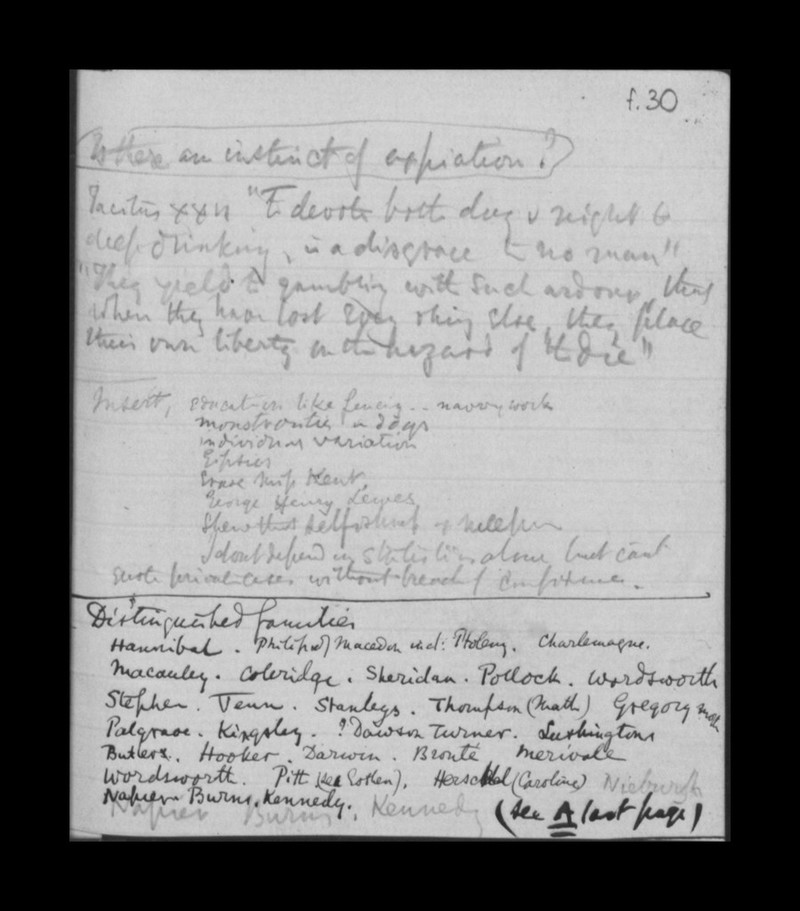 f.30
Is there an instinct of expiation?
Tacitus xxii "To devote both day & night to
deep drinking, is a disgrace to no man"
"They yield to gambling with such ardour, that
when they have lost every thing else, they place
their own liberty on the hazard of the die"
Insert, education like fencing .. navvy work
monstrosities in dogs
individual variation
Gipsies
Erase Miss Kent
George Henry Lewes
Shew that selfishness
I dont depend on statistics alone but can't
quote private cases without breach of confidence.
Distinguished families
Hannibal. Philip of Macedon incl: Ptolemy. Charlemagne.
Macauley. Coleridge. Sheridan. Pollock. Wordsworth
Stephen. Venn. Stanleys. Thompson (Math) Gregory math
Palgrave. Kingsley. ? Dawson Turner. Lushingtons
Butlers. Hooker. Darwin. Bronté Merivale
Wordsworth. Pitt. Herschel (Caroline) Niebuhr
Napier Burns. Kennedy.
Napier Burns, Kennedy (see A last page)